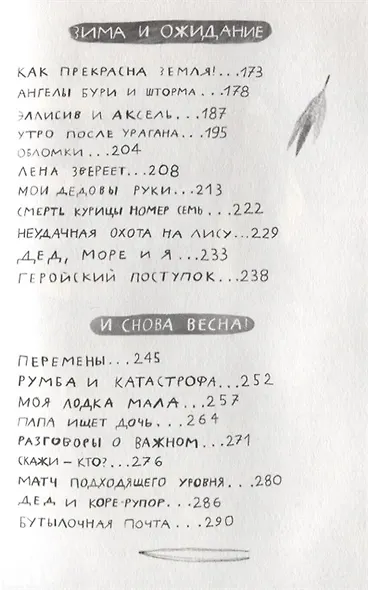 ЗИМА И ОЖИДАНИЕ
КАК ПРЕКРАСНА ЗЕМЛЯ!...173
АНГЕЛЫ БУРИ И ШТОРМА...178
ЭЛЛИСИВ И АКСЕЛЬ...187
УТРО ПОСЛЕ УРАГАНА...195
ОБЛОМКИ...204
ЛЕНА ЗВЕРЕЕТ...208
МОИ ДЕДОВЫ РУКИ...213
СМЕРТЬ КУРИЦЫ НОМЕР СЕМЬ...222
НЕУДАЧНАЯ ОХОТА НА ЛИСУ...229
ДЕД, МОРЕ И Я...233
ГЕРОЙСКИЙ ПОСТУПОК...238
И СНОВА ВЕСНА!
ПЕРЕМЕНЫ...245
РУМБА И КАТАСТРОФА...252
МОЯ ЛОДКА МАЛА...257
ПАПА ИЩЕТ ДОЧЬ...264
РАЗГОВОРЫ О ВАЖНОМ...271
СКАЖИ – КТО?...276
МАТЧ ПОДХОДЯЩЕГО УРОВНЯ...280
ДЕД И КОРЕ-РУПОР...286
БУТЫЛОЧНАЯ ПОЧТА...290